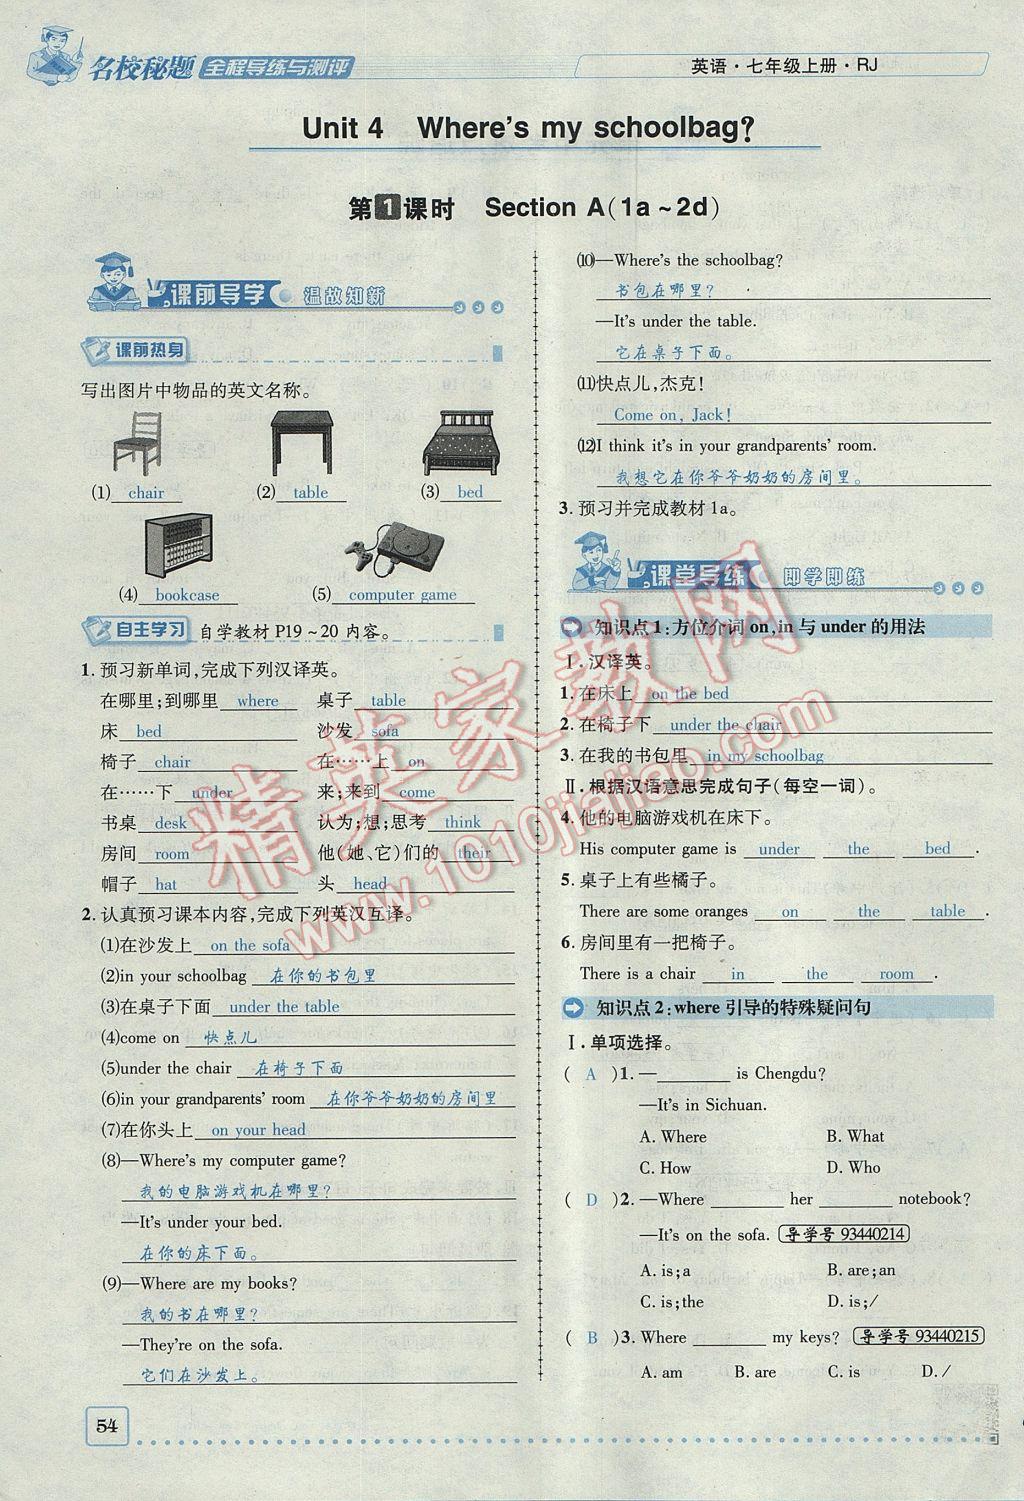 名校秘题 全程导练与测评
英语·七年级上册·RJ
Unit 4 Where's my schoolbag?
第1课时 Section A(1a~2d)
课前导学 温故知新
课前热身
写出图片中物品的英文名称。
(1) chair (2) table (3) bed
(4) bookcase (5) computer game
自主学习 自学教材 P19~20 内容。
1. 预习新单词,完成下列汉译英。
在哪里;到哪里 where 桌子 table
床 bed 沙发 sofa
椅子 chair 在……上 on
在……下 under 来;来到 come
书桌 desk 认为;想;思考 think
房间 room 他(她、它)们的 their
帽子 hat 头 head
2. 认真预习课本内容,完成下列英汉互译。
(1)在沙发上 on the sofa
(2)in your schoolbag 在你的书包里
(3)在桌子下面 under the table
(4)come on 快点儿
(5)under the chair 在椅子下面
(6)in your grandparents' room 在你爷爷奶奶的房间里
(7)在你头上 on your head
(8)—Where's my computer game?
我的电脑游戏机在哪里?
—It's under your bed.
在你的床下面。
(9)—Where are my books?
我的书在哪里?
—They're on the sofa.
它们在沙发上。
54
(10)—Where's the schoolbag?
书包在哪里?
—It's under the table.
它在桌子下面。
(11)快点儿,杰克!
Come on, Jack!
(12)I think it's in your grandparents' room.
我想它在你爷爷奶奶的房间里。
3. 预习并完成教材 1a。
课堂导练 即学即练
知识点1:方位介词 on,in 与 under 的用法
Ⅰ. 汉译英。
1. 在床上 on the bed
2. 在椅子下 under the chair
3. 在我的书包里 in my schoolbag
Ⅱ. 根据汉语意思完成句子(每空一词)。
4. 他的电脑游戏机在床下。
His computer game is under the bed .
5. 桌子上有些橘子。
There are some oranges on the table .
6. 房间里有一把椅子。
There is a chair in the room .
知识点2:where 引导的特殊疑问句
Ⅰ. 单项选择。
( A )1. —________ is Chengdu?
—It's in Sichuan.
A. Where B. What
C. How D. Who
( D )2. —Where ________ her ________ notebook?
—It's on the sofa. 导学号 93440214
A. is;a B. are;an
C. is;the D. is;/
( B )3. Where ________ my keys? 导学号 93440215
A. am B. are C. is D. /
精英家教网
www.1010jiajiao.com